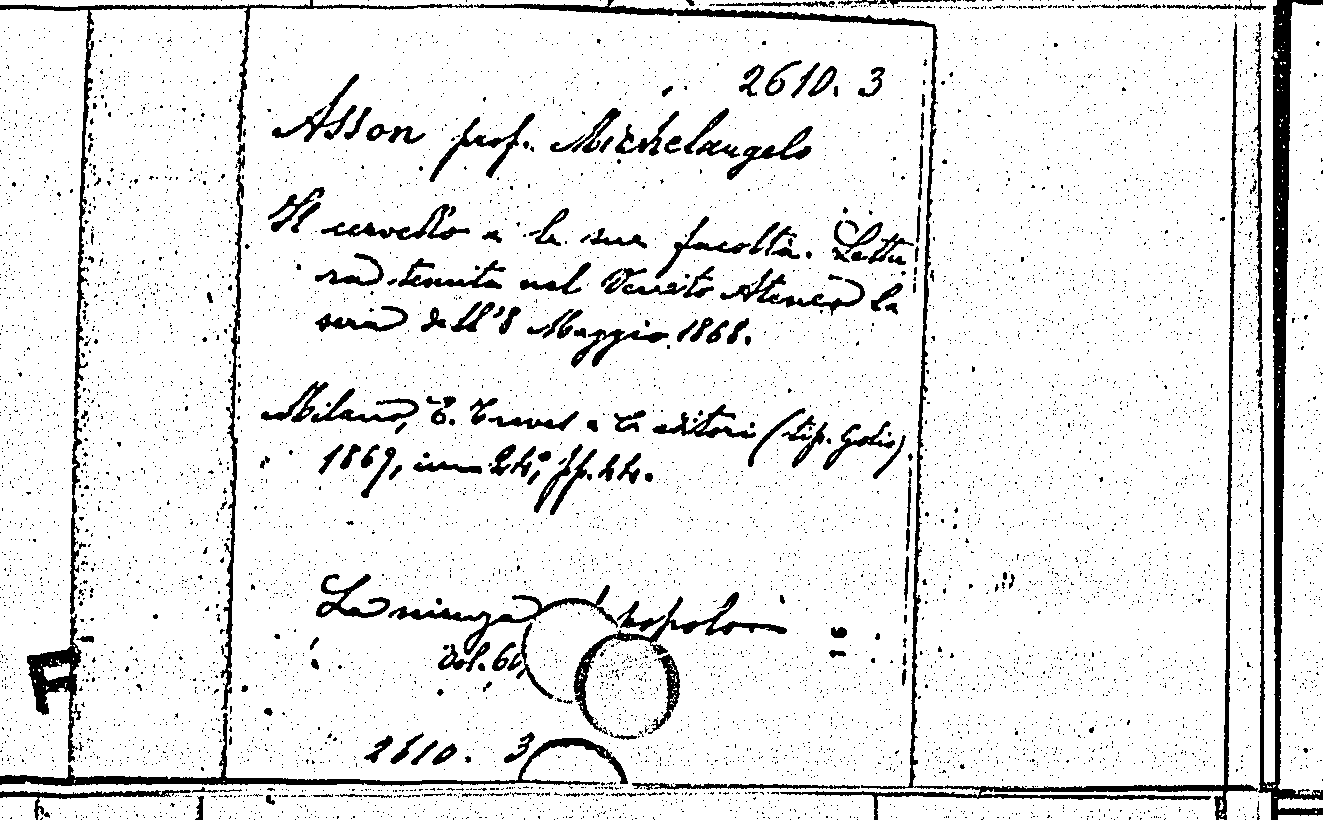 2610. 3
Asson prof. Michelangelo
Il cervello e le sue facoltà. Lettu
ra tenuta nel Veneto Ateneo la
sera dell'8 Maggio 1868.
Milano, E. Treves e C. editori (tip. Golio)
1869, in 24°, pp. 44.
La scienza popolo
Vol. 60
2610. 3